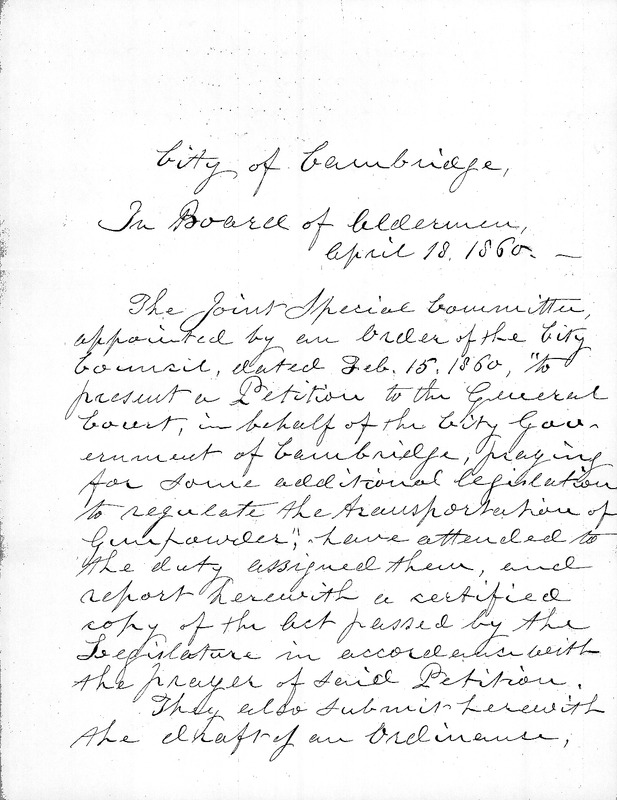 City of Cambridge,
In Board of Aldermen,
April 18. 1860. —
The Joint Special Committee,
appointed by an Order of the City
Council, dated Feb. 15. 1860, "to
present a Petition to the General
Court, in behalf of the City Gov-
ernment of Cambridge, praying
for some additional legislation
to regulate the transportation of
Gunpowder", have attended to
the duty assigned them, and
report herewith a certified
copy of the Act passed by the
Legislature in accordance with
the prayer of said Petition.
They also submit herewith
the draft of an Ordinance,